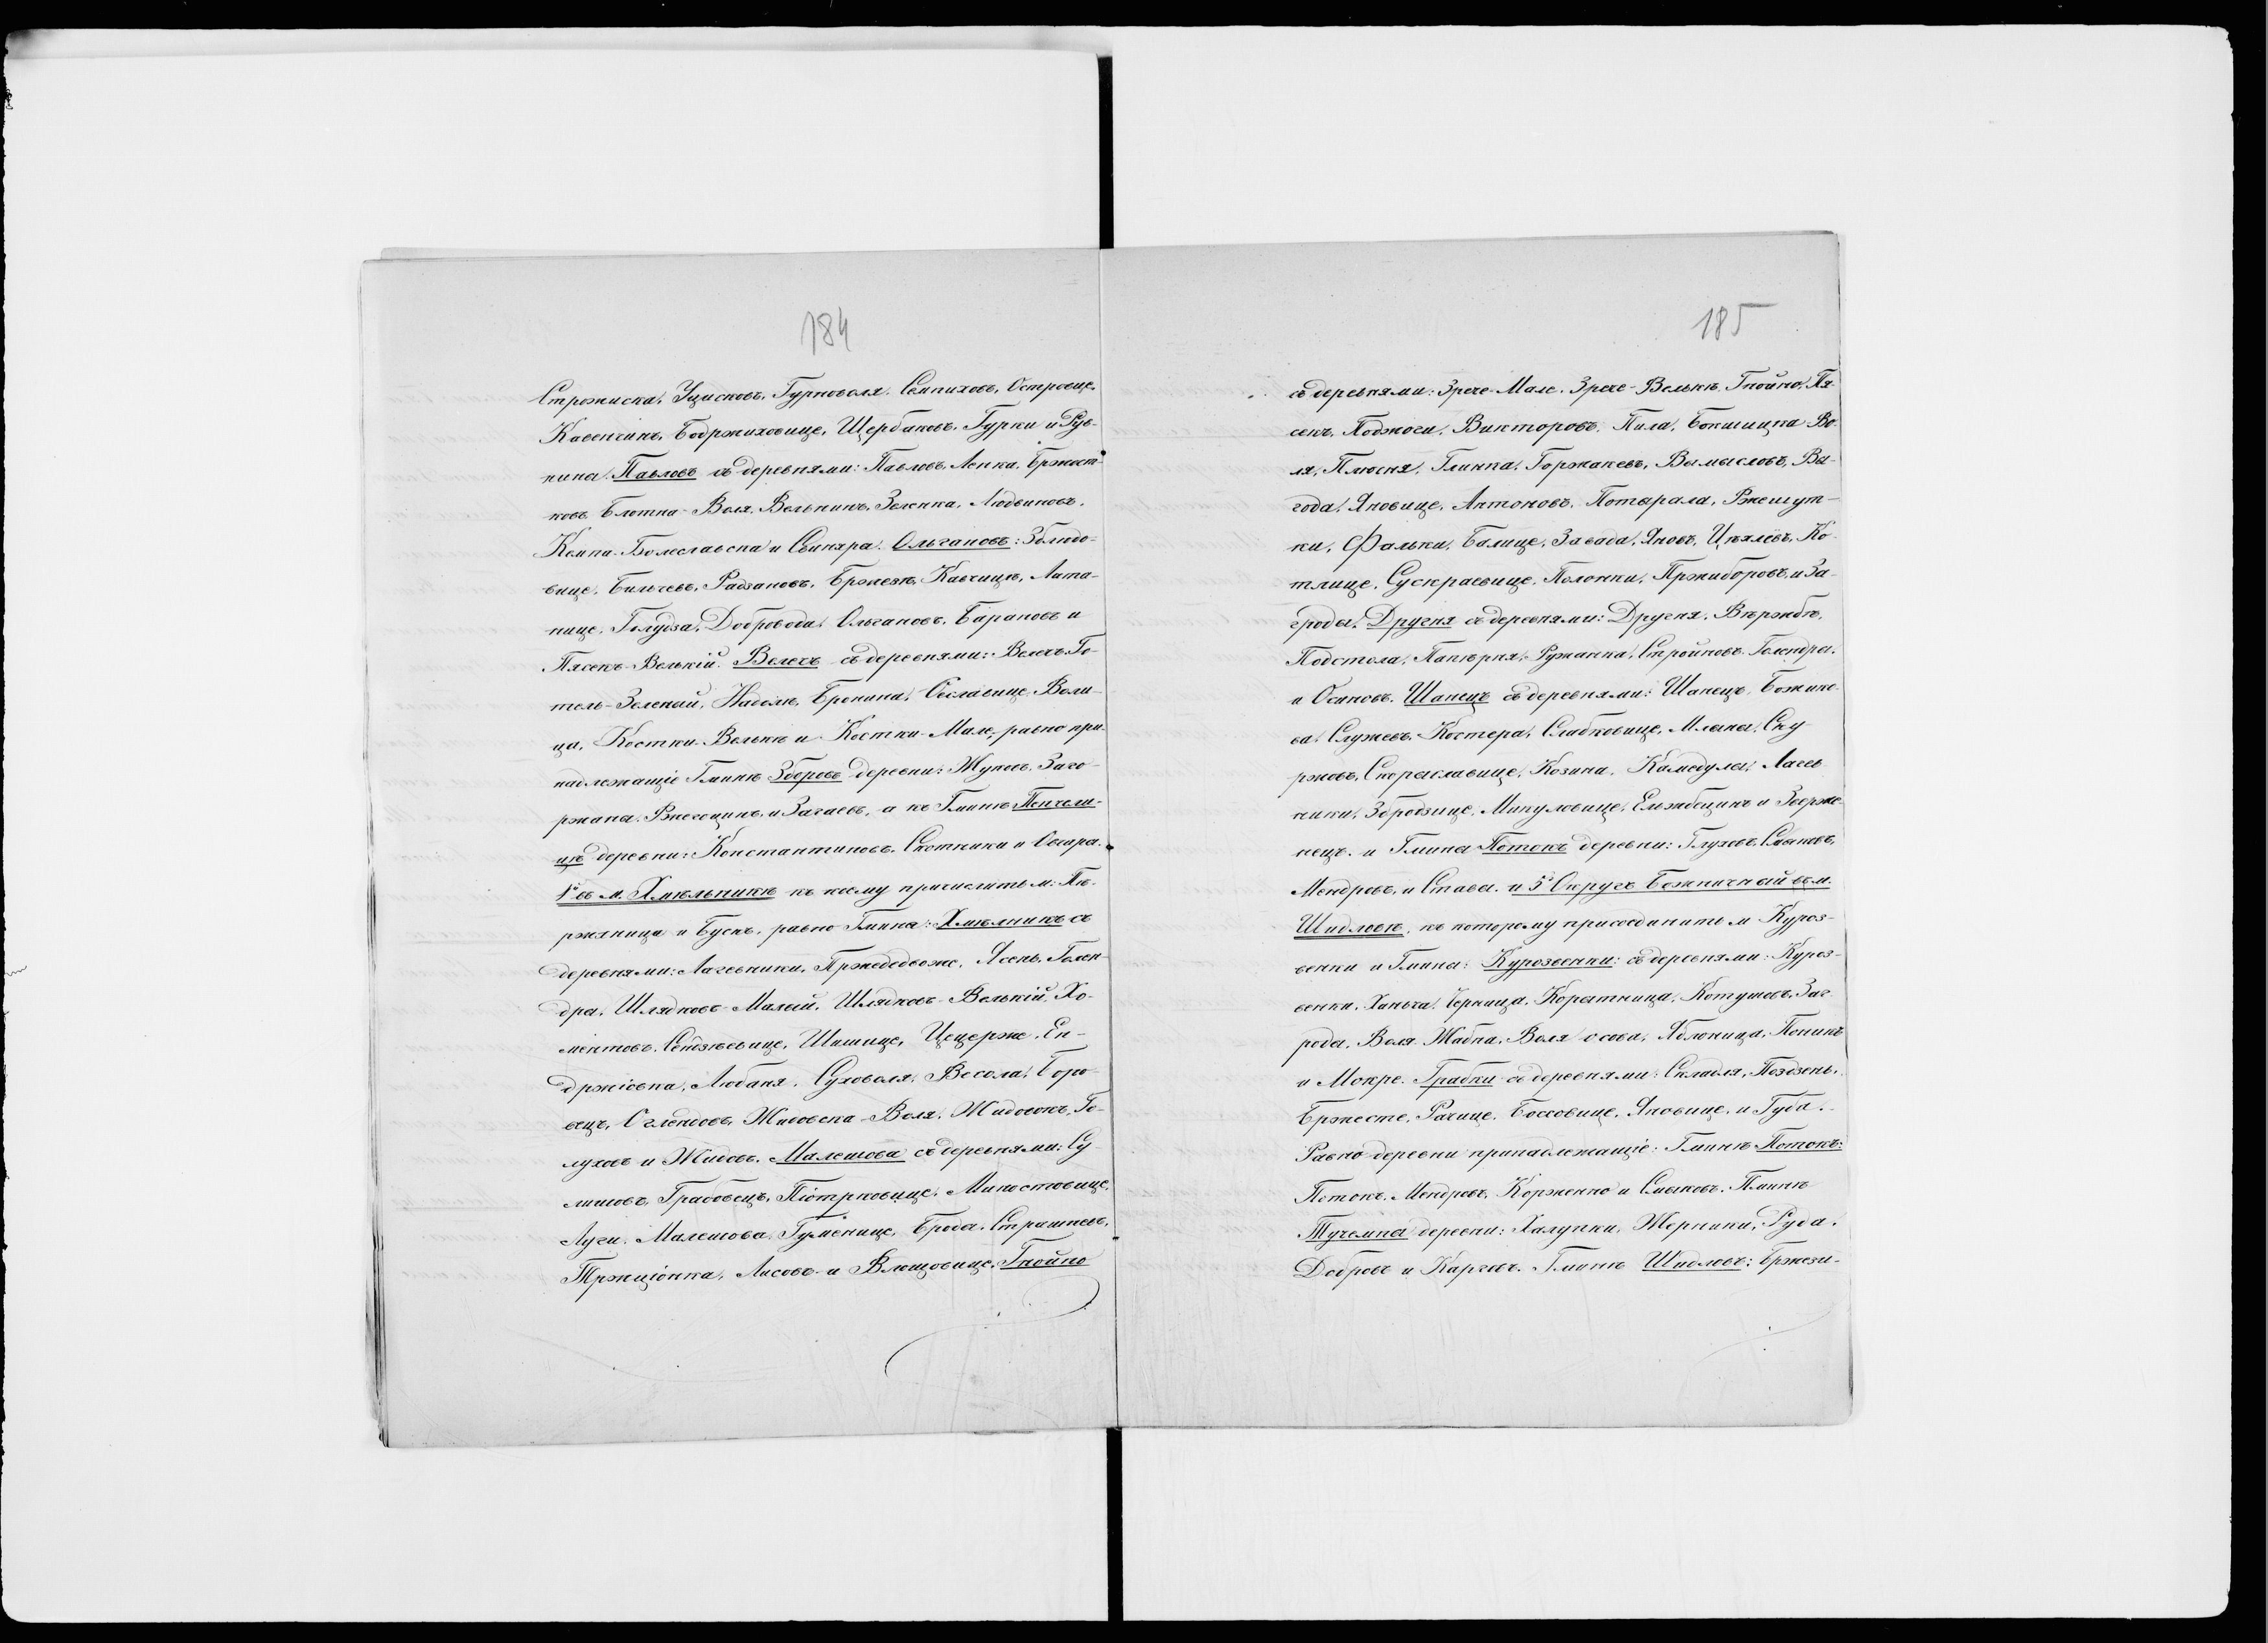 184
Строжиска, Уцисковъ, Гурноволя, Семпиховъ, Островце,
Кавенчинъ, Бодржиховице, Щербаковъ, Гурки и Руд-
нина. Павловъ съ деревнями: Павловъ, Лепка, Бржост-
ковъ, Блотна-Воля, Вельнинъ, Зеленка, Людвиновъ,
Кемпа-Болеславска и Свиняра. Ольгановъ: Зблудо-
вице, Бильчевъ, Радзановъ, Бржезе, Кавчице, Лата-
нице, Голудза, Добровода, Ольгановъ, Барановъ и
Пясекъ-Велькій. Велечъ съ деревнями: Велечъ, Го-
тель-Зеленый, Надоле, Бронина, Ославице, Воли-
ца, Костки-Велькѣ и Костки-Мале, равно при-
надлежащіе Гминѣ Зборовъ деревни: Жуковъ, Заго-
ржаны, Ржегоцинъ, и Загаевъ, а къ Гминѣ Пенчели-
це деревни: Константиновъ, Скотники и Овчары.
4º въ м. Хмѣльникѣ къ коему причислить м: Пѣ-
ржница и Бускъ, равно Гмина: Хмѣлникъ съ
деревнями: Лагевники, Пржededвоже, Ясень, Голен-
дра, Шлядковъ-Малый, Шлядковъ-Велькій, Хо-
ментовъ, Сендзѣевице, Шишице, Цецерже, Ен-
држіовка, Любаня, Суховоля, Весола, Боро-
вецъ, Оглендовъ, Жидовска-Воля, Жидочокъ, Го-
луховъ и Жидовъ. Малешова съ деревнями: Су-
лишовъ, Грабовецъ, Піотрковице, Миностовице,
Луги, Малешова, Гуменице, Броды, Страшневъ,
Тржціонка, Лисовъ и Влощовице. Гнойно
185
съ деревнями: Зрече-Мале, Зрече-Велькѣ, Гнойно, Пя-
секъ, Поджоги, Викторовъ, Пила, Бокшицка Во-
ля, Плосня, Глинка, Горжаковъ, Вымысловъ, Вы-
года, Яновице, Антоновъ, Потырала, Ржешут-
ки, Фальки, Балице, Завада, Яновъ, Цѣялевъ, Ко-
тлице, Сускраевице, Полонки, Пржиборовъ, и За-
гроды. Другня съ деревнями: Другня, Вѣржбѣ,
Подстола, Папѣрня, Ружанка, Стройновъ, Голендры,
и Осиновъ. Шанецъ съ деревнями: Шанецъ, Божино-
ва, Служевъ, Костера, Слабковице, Млыны, Ску-
ржовъ, Скорыславице, Козина, Камедулы, Лагев-
ники, Збродзице, Микуловице, Ельжбецинъ и Зверже-
нецъ. и Гмины Потокъ деревни: Глуховъ, Смыковъ,
Мендровъ, и Ставы. и 5º Округъ Божничный въ м.
Шидловѣ, къ которому присоединить м Куроз-
венки и Гмины: Курозвенки: съ деревнями: Куроз-
венки, Ханьча, Черница, Корытница, Котушовъ, Заг-
роды, Воля-Жабна, Воля осова, Яблоница, Поникъ
и Мокре. Грабки съ деревнями: Складля, Поздзень,
Бржесте, Рачице, Боссовице, Яновице, и Гуда.
Равно деревни принадлежащіе: Гминѣ Потокъ:
Потокъ, Мендровъ, Корженно и Смыковъ. Гминѣ
Тучемпа деревни: Халупки, Жерники, Руда,
Добровъ и Карговъ. Гминѣ Шидловъ: Бржези-